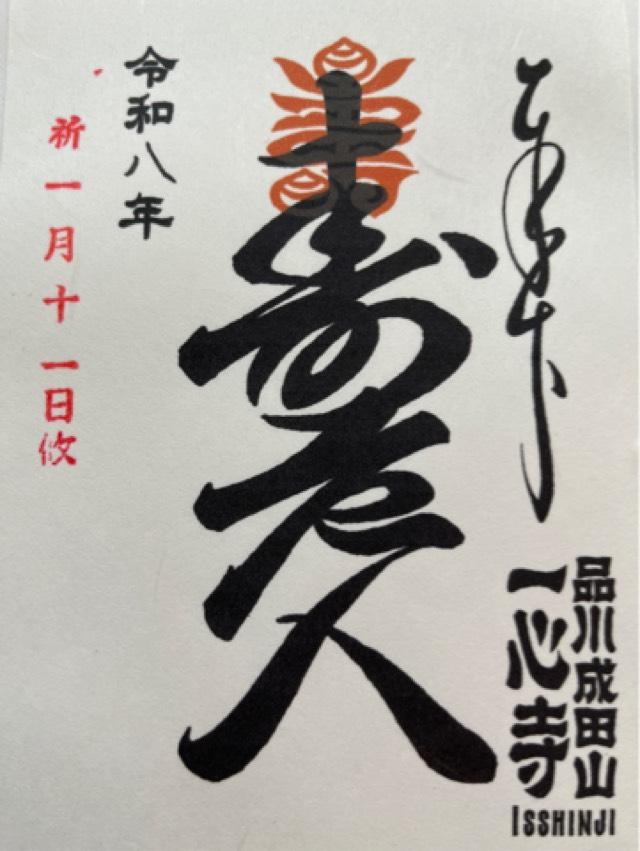 奉拝
寿老人
品川成田山
一心寺
ISSHINJI
令和八年
祈一月十一日攸